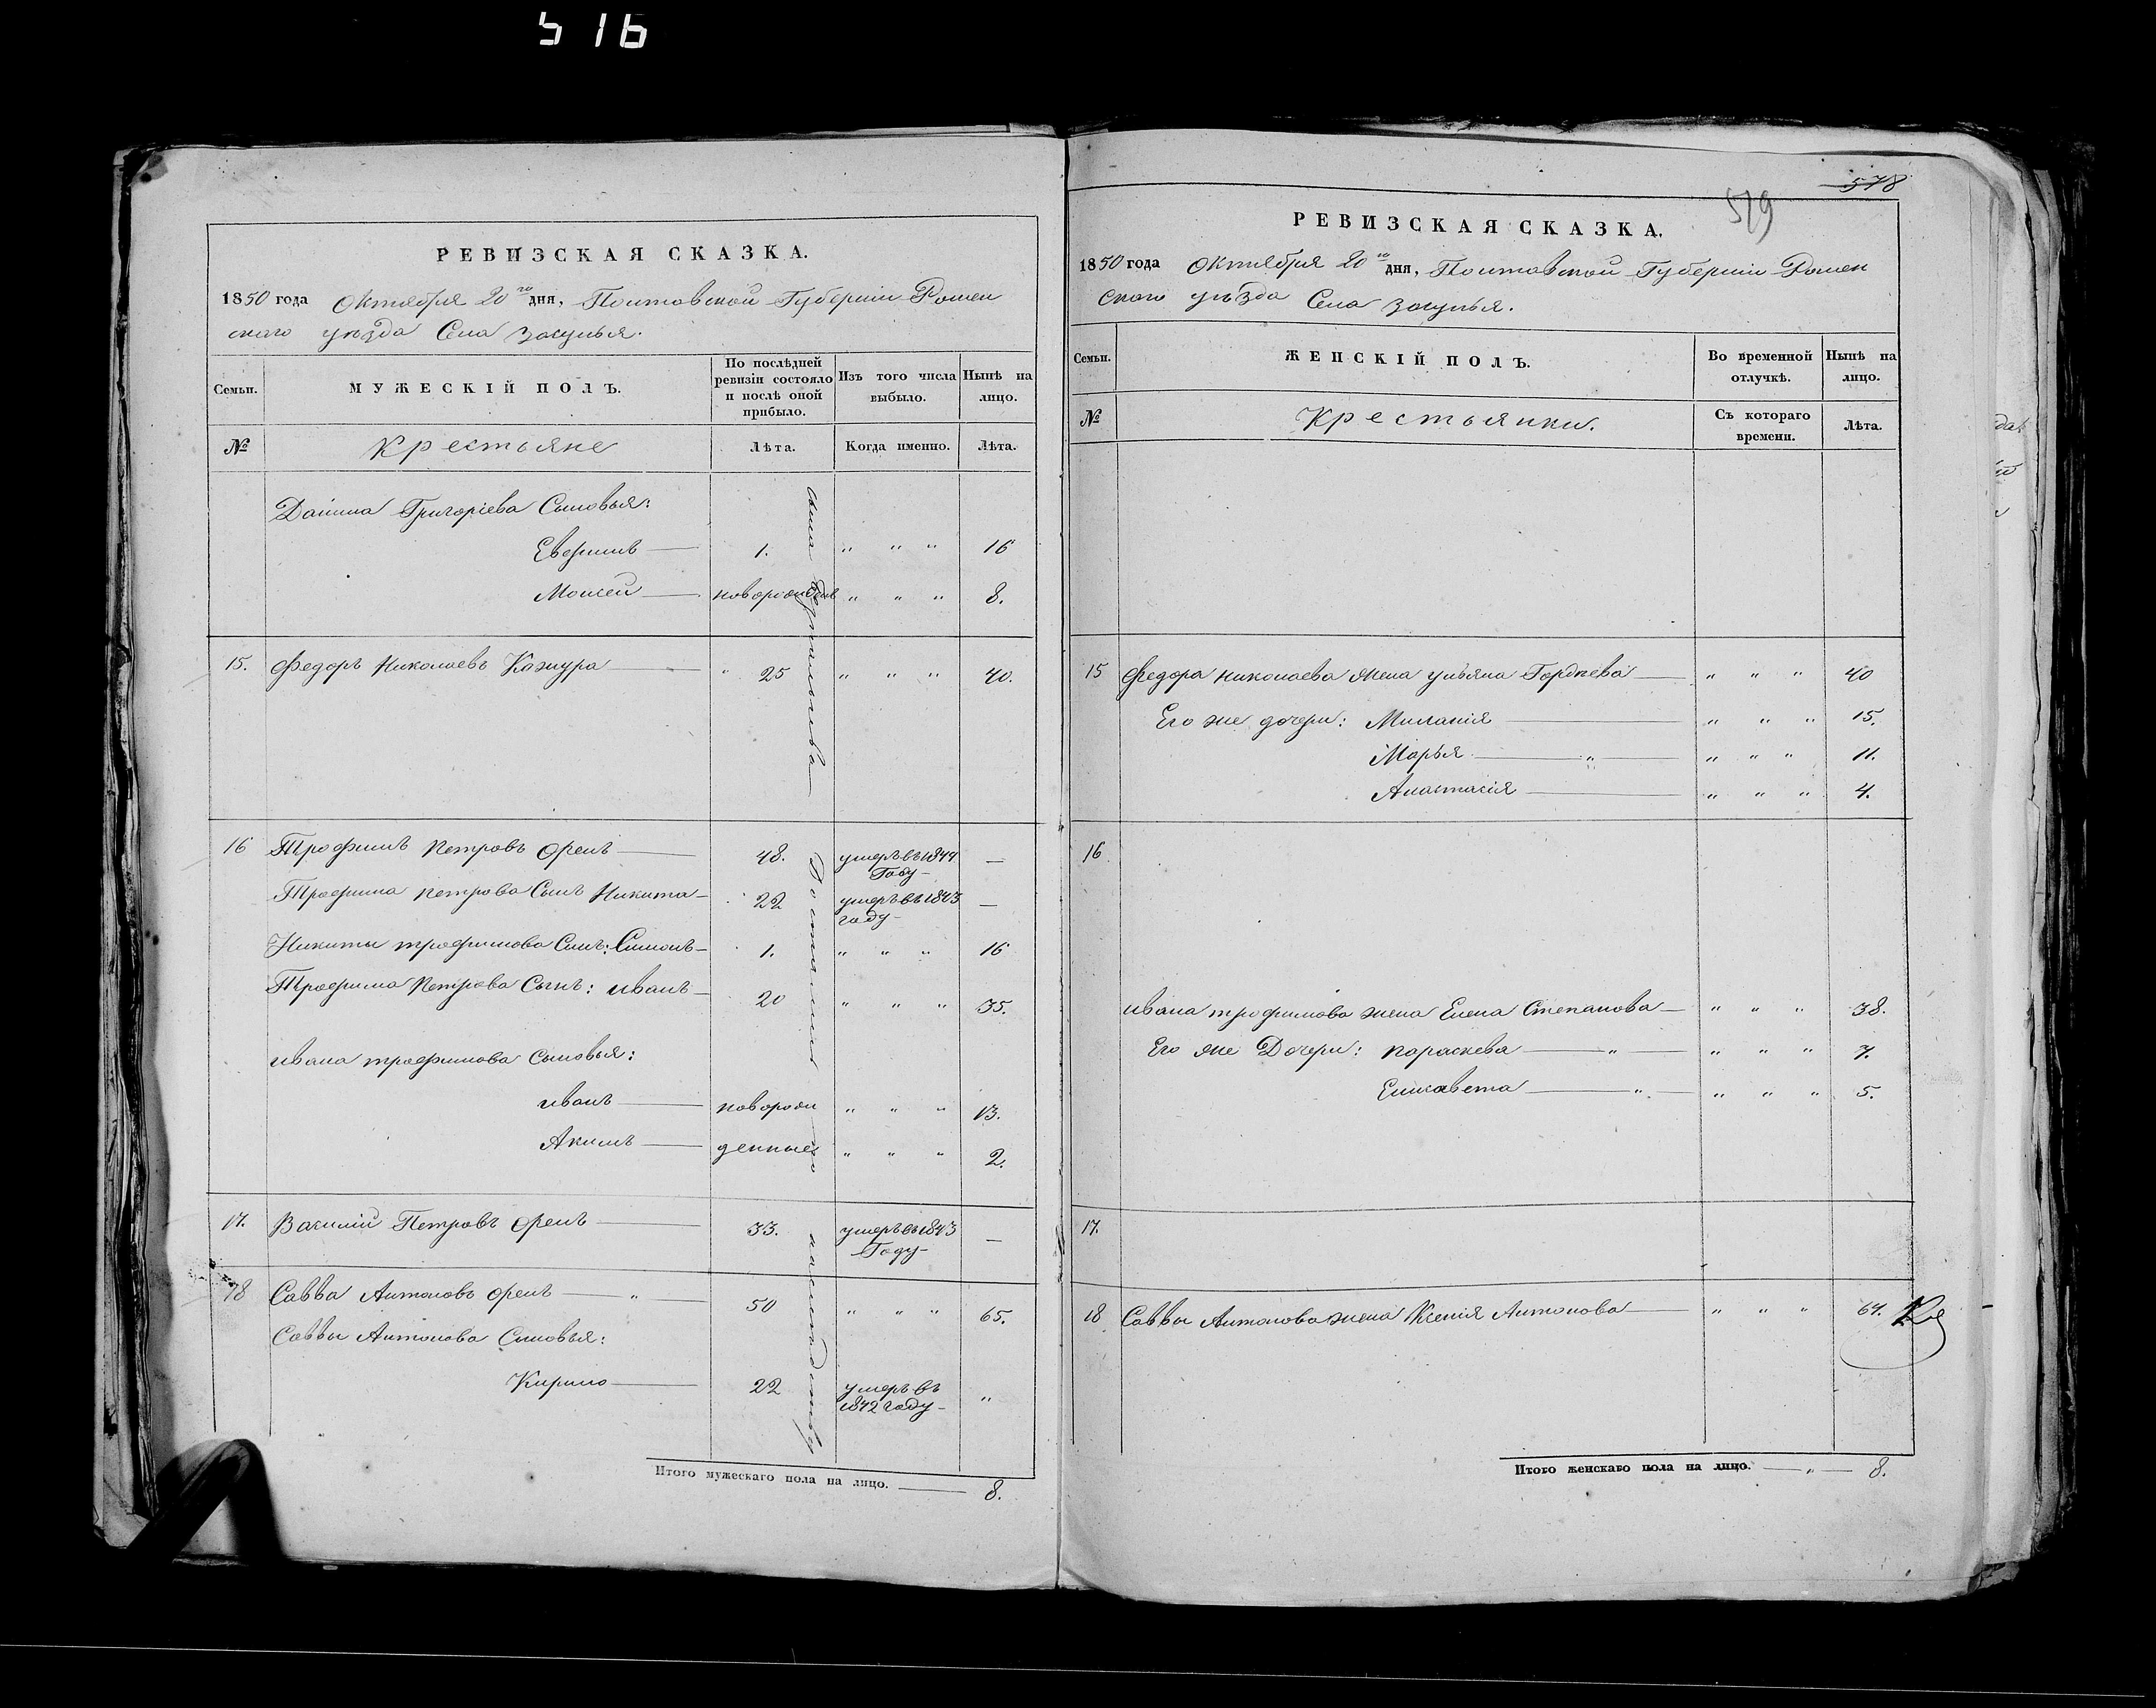 516
РЕВИЗСКАЯ СКАЗКА.
1850 года Октября 20го дня, Полтавской Губерніи Ромен
скаго уѣзда Села Засулья.
Семьи. МУЖЕСКІЙ ПОЛЪ. По послѣдней ревизіи состояло и послѣ оной прибыло. Изъ того числа выбыло. Нынѣ на лицо.
№ Крестьяне Лѣта. Когда именно. Лѣта.
Данила Григоріева Сыновья:
Евфимъ — 1. " " " 16
Моисей — новорожден " " " 8.
15. Федоръ Николаевъ Кажура — 25 " " " 40.
16 Трофимъ Петровъ Орелъ — 48. умеръ въ 1844 Году —
Трофима Петрова Сынъ Никита — 22 умеръ въ 1843 году —
Никиты Трофимова Сынъ: Симонъ — 1. " " " 16
Трофима Петрова Сынъ: Иванъ — 20 " " " 35.
Ивана Трофимова Сыновья:
Иванъ — новорож " " " 13.
Акимъ — денные " " " 2.
17. Василій Петровъ Орелъ — 33. умеръ въ 1843 Году —
18 Савва Антоновъ Орелъ — " — 50 " " " 65.
Саввы Антонова Сыновья:
Кирило — 22 умеръ въ 1842 году — "
Итого мужескаго пола на лицо. — 8.
578
579
РЕВИЗСКАЯ СКАЗКА.
1850 года Октября 20го дня, Полтавской Губерніи Ромен
скаго уѣзда Села Засулья.
Семьи. ЖЕНСКІЙ ПОЛЪ. Во временной отлучкѣ. Нынѣ на лицо.
№ Крестьянки. Съ котораго времени. Лѣта.
15 Федора Николаева жена Ульяна Гордѣева — " " " 40
Его же дочери: Миланія — " " " 15.
Марья — " — " " " 11.
Анастасія — " " " 4.
16
Ивана Трофимова жена Елена Степанова — " " " 38.
Его же Дочери: Параскева — " — " " " 7.
Елисавета — " — " " " 5.
17.
18 Саввы Антонова жена Ксенія Антонова — " " " 64.
Итого женскаго пола на лицо. — " — 8.